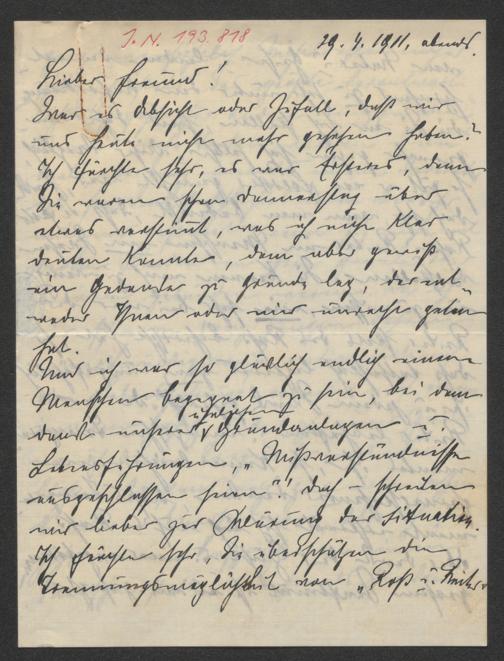 J. N. 193.818
29. 4. 1911, abends.
Lieber Freund!
War es Absicht oder Zufall, daß wir
uns heute nicht mehr gesehen haben?
Ich fürchte sehr, es war Ersteres, denn
Sie waren schon Donnerstag über
etwas verstimmt, was ich nicht klar
deuten konnte, dem aber gewiß
ein Gedanke zu Grunde lag, der ent-
weder Ihnen oder mir unrecht getan
hat.
Und ich war so glücklich endlich einem
Menschen begegnet zu sein, bei dem
dank unserer ähnlichen Grundanlagen u.
Lebensführungen, „Mißverständnisse
ausgeschlossen seien"! Doch – schreiten
wir lieber zur Klärung der Situation.
Ich fürchte sehr, Sie überschätzen die
Trennungsmöglichkeit von „Roß u. Reiter"